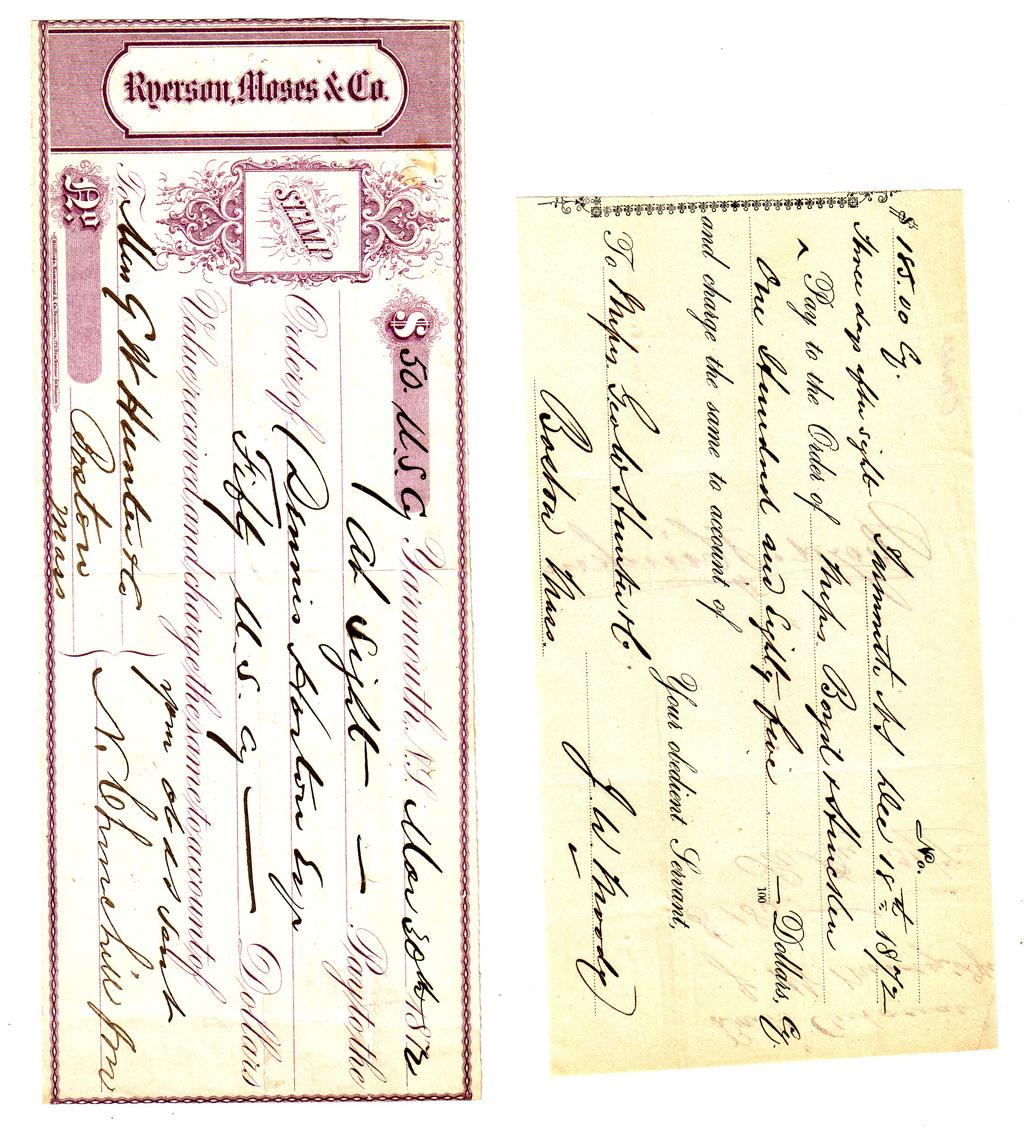 Ryerson, Moses & Co.
STAMP
No.
$ 50. U.S. Cy Yarmouth, N.S. Nov 30th 1872
At Sight — Pay to the
Order of Dennis Horton Esqr
Fifty U.S. Cy — Dollars
Value received and charge the same to account of
your obdt Servt
To Mess G W Hunter & Co
Boston
Mass
N. Churchill Jnr
No.
$ 185.00 Cy. Yarmouth NS Dec 18th 1872
Three days after sight
^ Pay to the Order of Messrs. Boyd &
One Hundred and Eighty five — 100 Dollars, Cy.
and charge the same to account of
Your obedient Servant,
To Messrs. Geo W Hunter & Co.
Boston Mass.
J. W. Moody